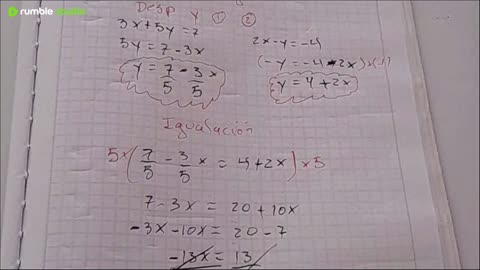 rumble
Desp y ① ②
3x+5y=7
5y=7-3x
y=7/5-3/5x
2x-y=-4
(-y=-4-2x)x-1
y=4+2x
Igualación
5x(7/5-3/5x=4+2x)x5
7-3x=20+10x
-3x-10x=20-7
-13x=13